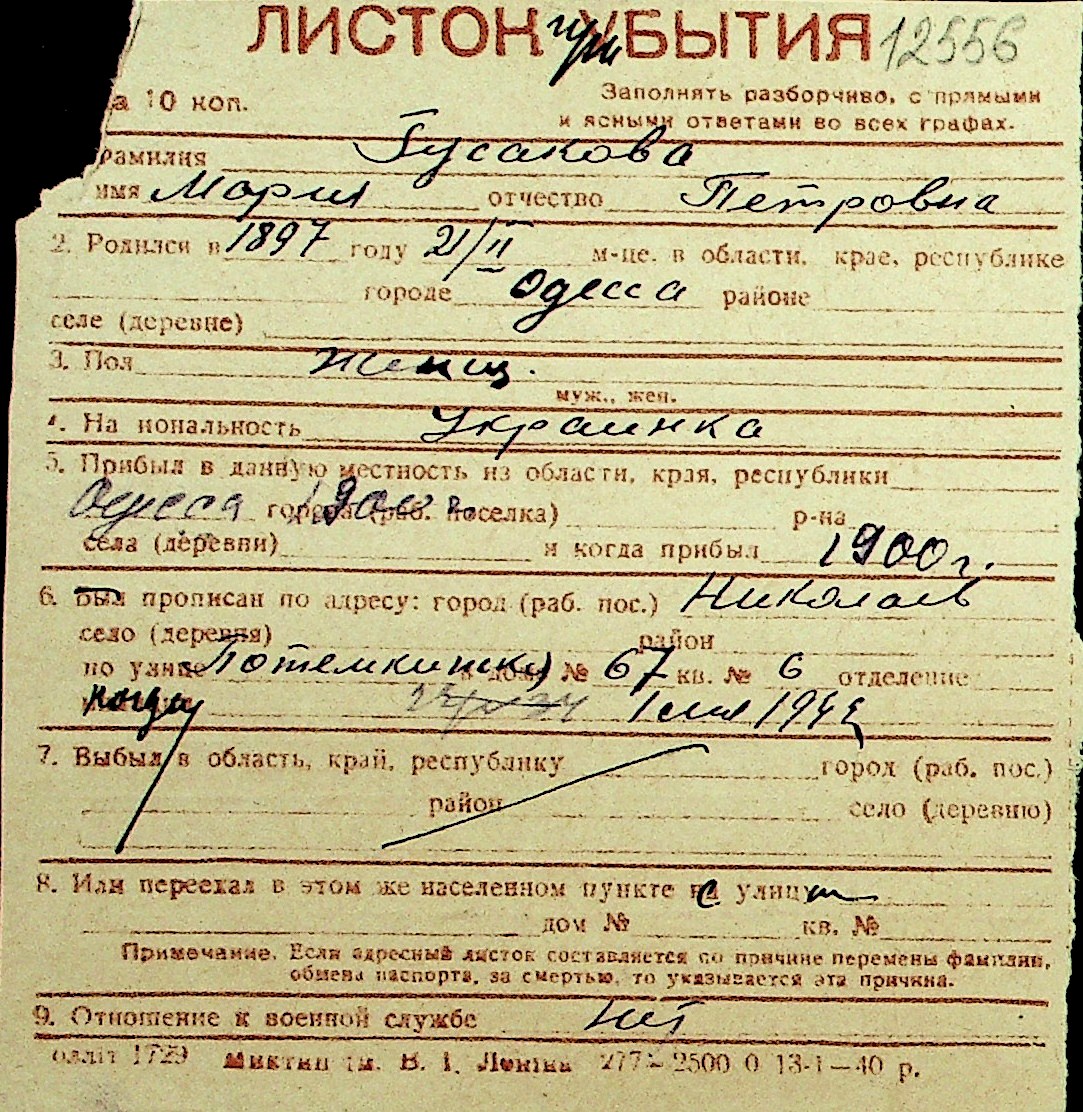 ЛИСТОК при УБЫТИЯ 12556
а 10 коп. Заполнять разборчиво, с прямыми
и ясными ответами во всех графах.
фамилия Гусакова
имя Мария отчество Петровна
2. Родился в 1897 году 21/II м-це, в области, крае, республике
городе Одесса районе
селе (деревне)
3. Пол женщ.
муж., жен.
4. На иональность Украинка
5. Прибыл в данную местность из области, края, республики
Одесса города (раб. поселка) р-на
села (деревни) и когда прибыл 1900 г.
6. Был прописан по адресу: город (раб. пос.) Николаев
село (деревня) район
по улице Потемкинской в доме № 67 кв. № 6 отделение
когда 1944
7. Выбыл в область, край, республику город (раб. пос.)
район село (деревню)
8. Или переехал в этом же населенном пункте с улицы
дом № кв. №
Примечание. Если адресный листок составляется по причине перемены фамилии,
обмена паспорта, за смертью, то указывается эта причина.
9. Отношение к военной службе нет
обліт 1729 Миктип ім. В. І. Леніна 277–2500 0 13-1—40 р.